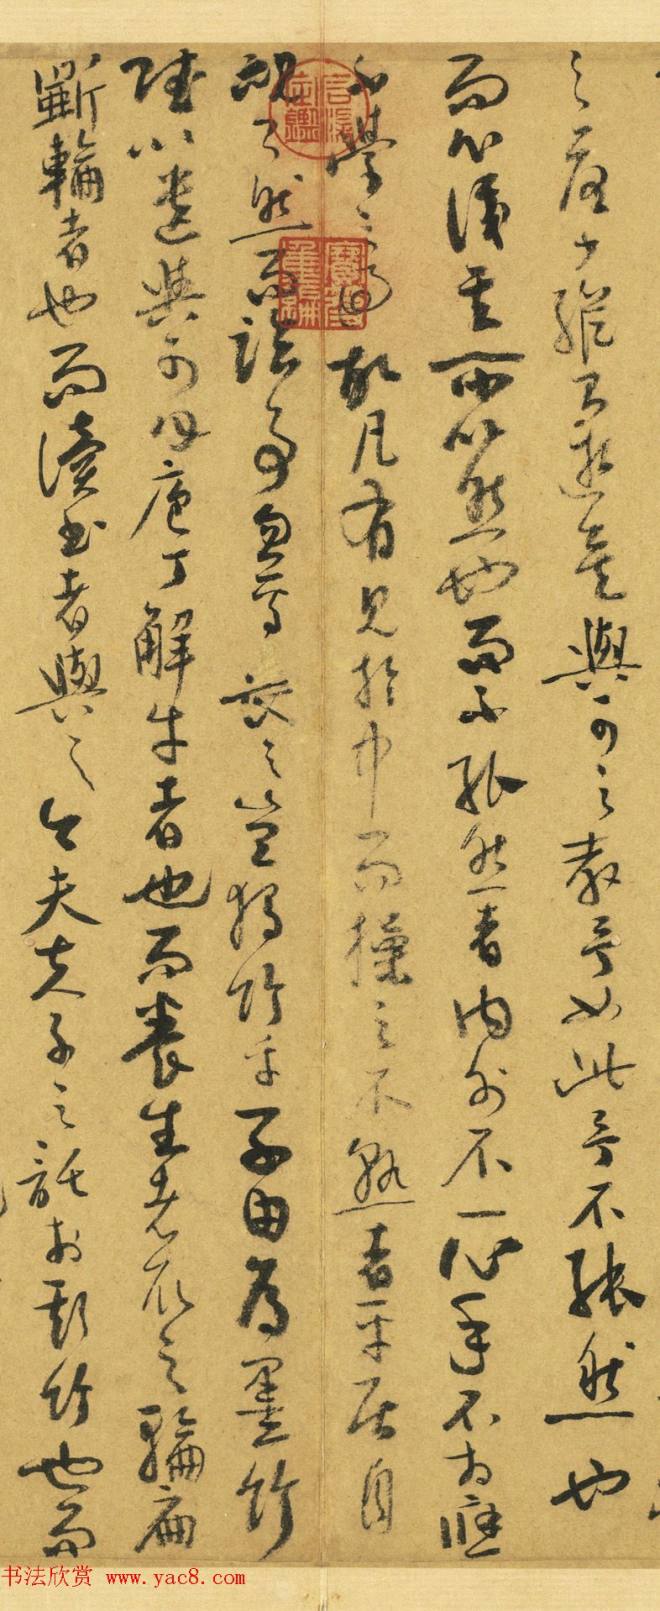 之落少縱則逝矣與可之教予如此予不能然也
而心識其所以然也而不能然者內外不一心手不相應
不學之過故凡有見於中而操之不熟者平居自
視了然而臨事忽焉喪之豈獨竹乎子由為墨竹
賦以遺與可曰庖丁解牛者也而養生者取之輪扁
斲輪者也而讀書者與之今夫夫子之託於斯竹也而
书法欣赏 www.yac8.com